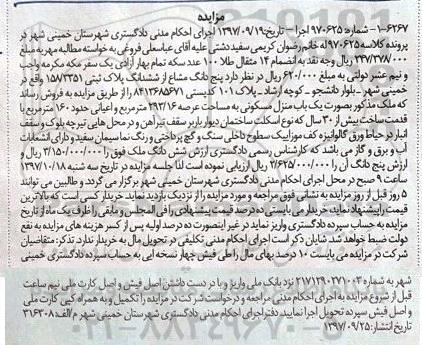 مزایده
۱-۶۲۶۷- شماره: ۹۷۰۶۲۵ اجرا – تاریخ: ۱۳۹۷/۰۹/۱۹ اجرای احکام مدنی دادگستری شهرستان خمینی شهر در
پرونده کلاسه ۹۷۰۶۲۵ له خانم رضوان کریمی سفیددشتی علیه آقای عباسعلی فروغی به خواسته مطالبه مهریه مبلغ
۲۴۷/۳۷۸/۰۰۰ ریال وجه نقد به انضمام ۱۴ مثقال طلا ۱۰۰ عدد سکه تمام بهار آزادی یک سفر مکه مکرمه واجب
و نیم عشر دولتی به مبلغ ۶۲۰/۰۰۰ ریال در نظر دارد پنج دانگ مشاع از ششدانگ پلاک ثبتی ۱۵۸۷۳۵۱ واقع در
خمینی شهر – بلوار دانشجو – کوچه ارشاد – پلاک ۱۰۱ کدپستی ۸۴۱۳۶۸۵۶۷۱ را از طریق مزایده به فروش رساند
که ملک مذکور بصورت یک باب منزل مسکونی به مساحت عرصه ۳۹۳/۱۶ مترمربع و اعیانی حدود ۱۶۰ مترمربع با
قدمت ساخت بیش از ۳۰ سال که نوع اسکلت ساختمان دیوار باربر سقف تیرآهن و در محل هایی تیرچه بلوک و سقف
انبار در حیاط ورق گالوانیزه کف موزاییک سطوح داخلی سنگ و گچ پرداختی و رنگ نما سیمان سفید و دارای انشعابات
آب و برق و گاز می باشد که کارشناس رسمی دادگستری ارزش شش دانگ ملک فوق را ۳/۱۵۰/۰۰۰/۰۰۰ ریال و
ارزش پنج دانگ آن را ۲/۶۲۵/۰۰۰/۰۰۰ ریال ارزیابی نموده است لذا جلسه مزایده در تاریخ سه شنبه ۱۳۹۷/۱۰/۱۸
ساعت ۹ صبح در محل اجرای احکام مدنی دادگستری شهرستان خمینی شهر برگزار می گردد و طالبین می توانند
۵ روز قبل از روز مزایده به نشانی فوق مراجعه و مورد مزایده را از نزدیک بازدید نماید. خریدار کسی است که بالاترین
قیمت را پیشنهاد نماید، خریدار می بایستی ده درصد قیمت پیشنهادی را فی المجلس و مابقی را ظرف یک ماه از تاریخ
مزایده به حساب سپرده دادگستری واریز نماید در غیر اینصورت ده درصد اولیه پس از کسر هزینه های مزایده به نفع
دولت ضبط خواهد شد. شایان ذکر است اجرای احکام مدنی تکلیفی در تحویل مال به خریدار ندارد. تذکر: متقاضیان
شرکت در مزایده می بایست ۱۰ درصد بهای مال را طی فیش چهار نسخه ایی به حساب سپرده دادگستری خمینی
شهر به شماره ۲۱۷۱۲۹۰۲۷۱۰۰۳ نزد بانک ملی واریز و با در دست داشتن اصل فیش و اصل کارت ملی نیم ساعت
قبل از شروع مزایده به اجرای احکام مدنی مراجعه و درخواست شرکت در مزایده را تکمیل و به همراه کپی کارت ملی
و اصل فیش سپرده تحویل اجرا نمایند. دفتر اجرای احکام مدنی دادگستری شهرستان خمینی شهر م الف: ۳۱۶۳۰۸
تاریخ انتشار: ۱۳۹۷/۰۹/۲۵